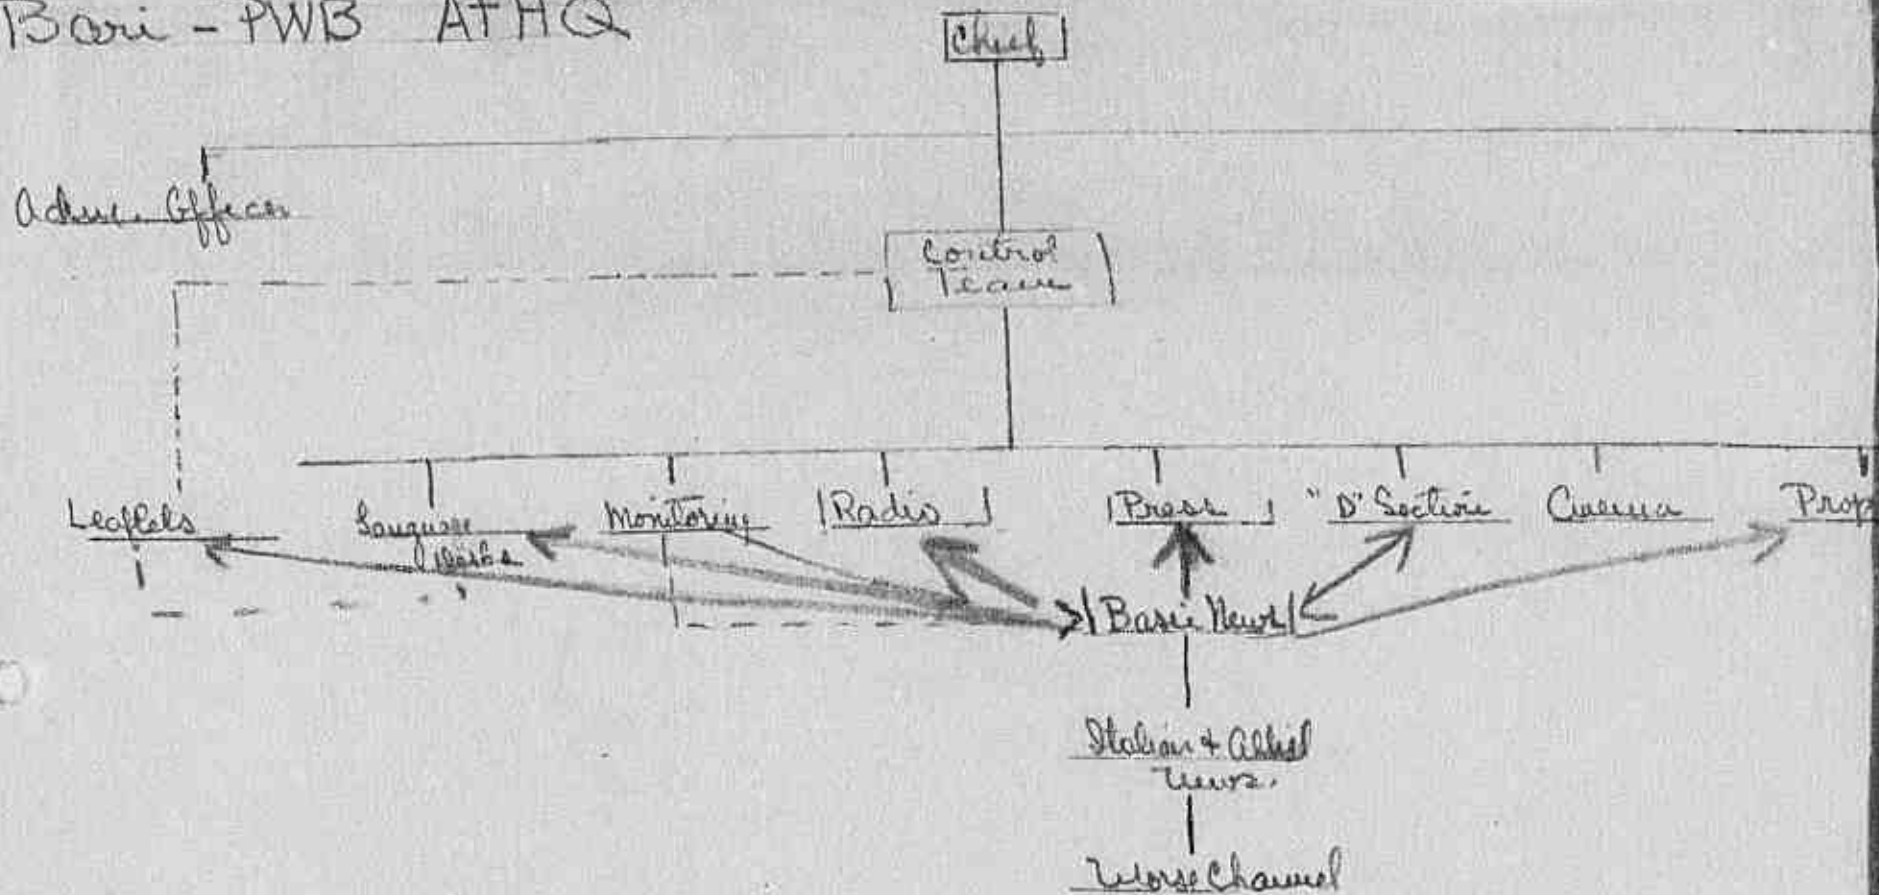 Bari - PWB AFHQ
Chief
Officer
Control
Team
Leaflets
Language
Desks
Monitoring
Radio
Press
"D" Section
Cinema
Prop
Basic News
Italian + Allied
News.
Morse Channel